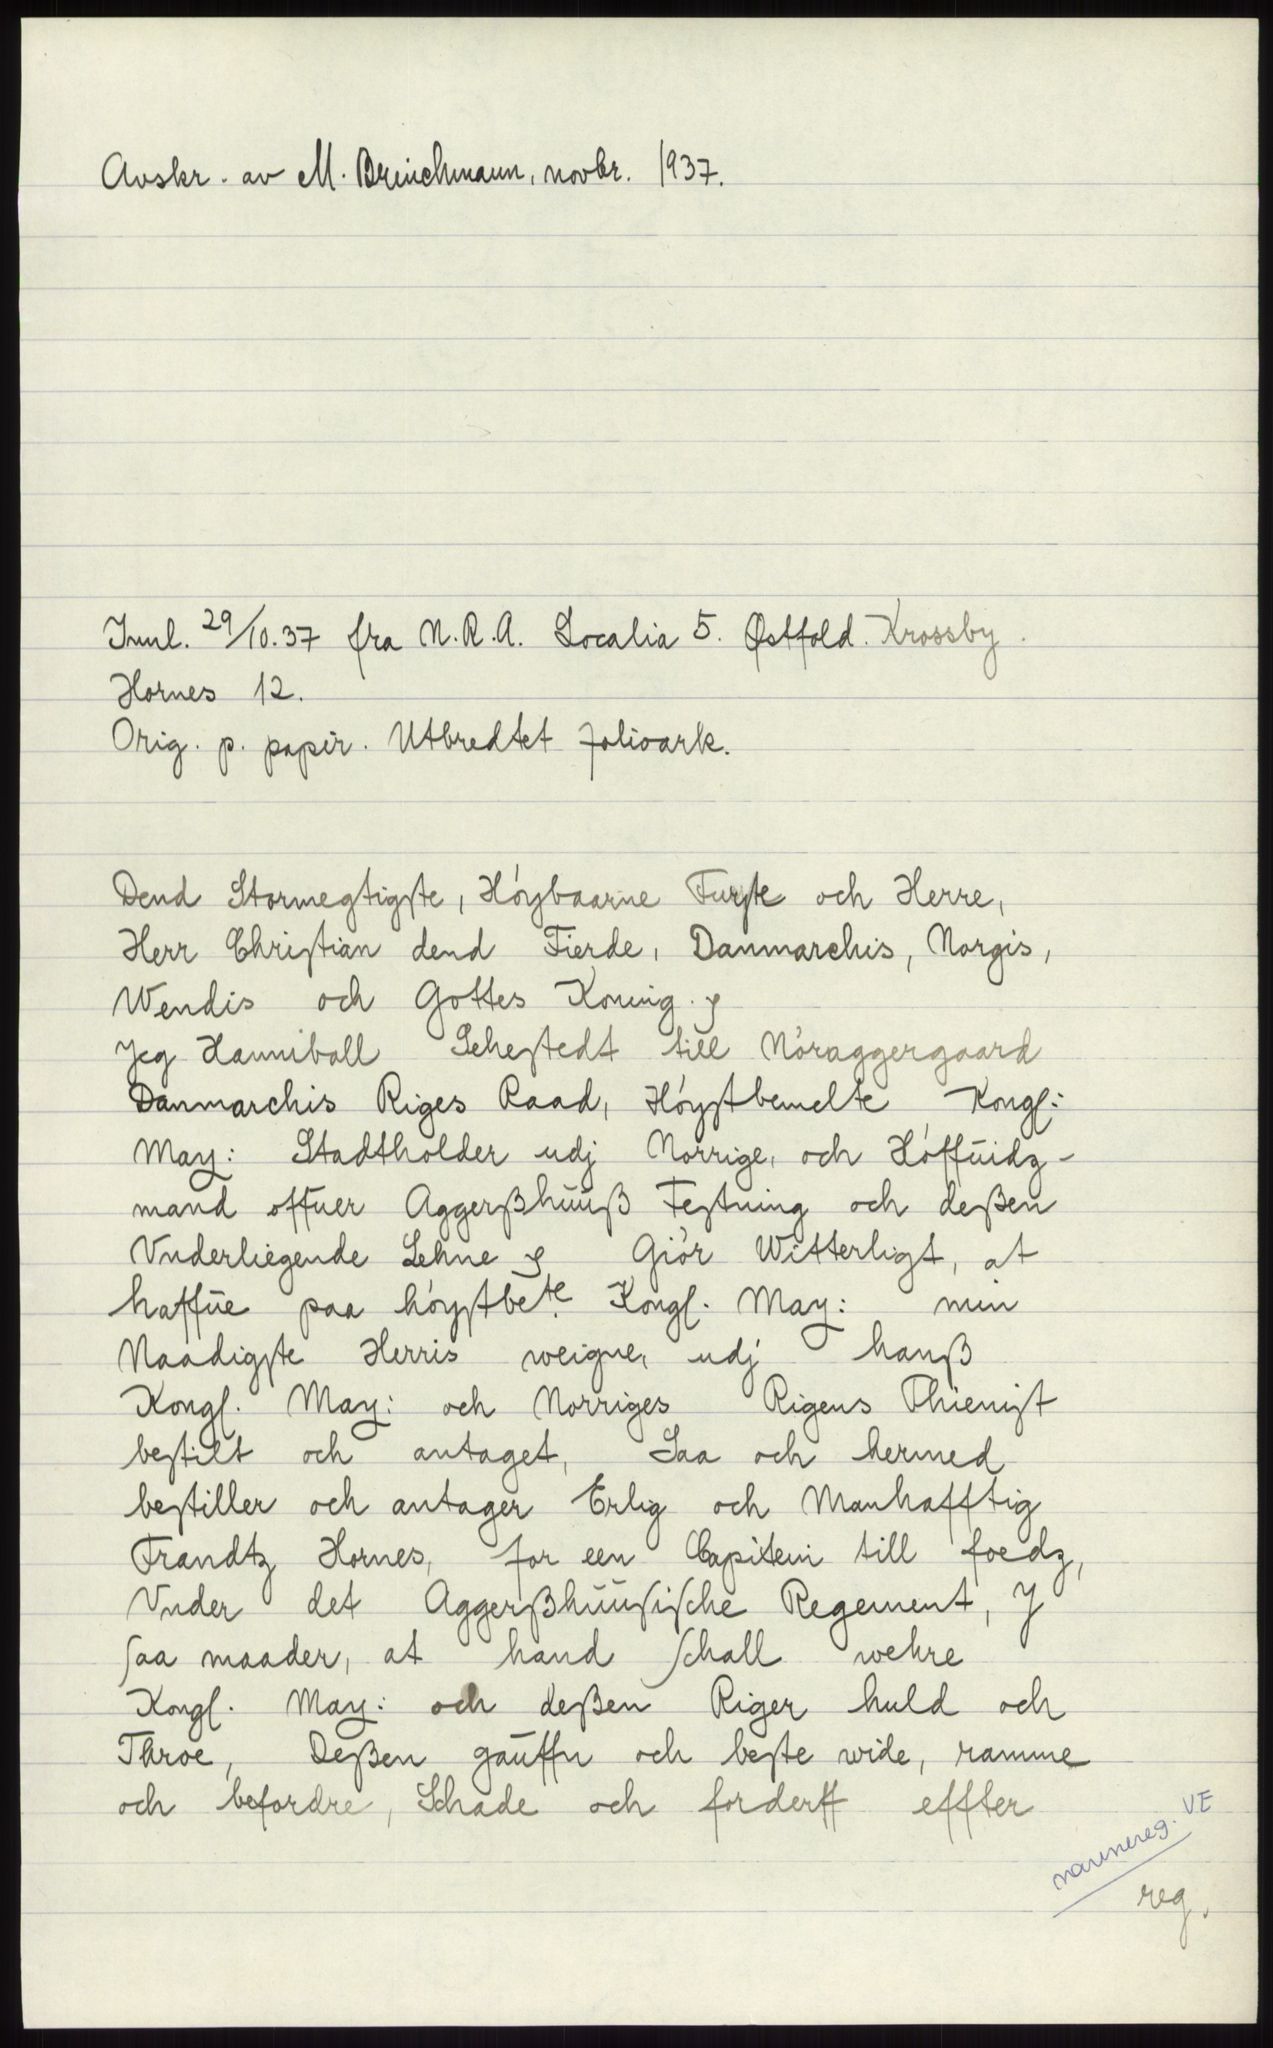 Avskr. av M. Brinchmann, novbr. 1937.
Innl. 29/10.37 fra N.R.A. Localia 5. Østfold. Krossby.
Hornes 12.
Orig. p. papir. Utbredtet folioark.
Dend Stormegtigste, Höybaarne Furste och Herre,
Herr Christian dend Fierde, Danmarchis, Norgis,
Wendis och Gottes Koning.
Jeg Hanniball Sehestedt till Nöraggergaard
Danmarchis Riges Raad, Höystbemelte Kongl:
May: Stadtholder udj Norrige, och Höffuidz-
mand offuer Aggerßhuuß Festning och deßen
Vnderliegende Lehne Giör Witterligt, at
haffue paa höystbete. Kongl. May: min
Naadigste Herris weigne, udj hanß
Kongl. May: och Norriges Rigens Thienist
bestilt och antaget, Saa och hermed
bestiller och antager Erlig och Manhafftig
Frandtz Hornes, for een Capitein till foedz,
Vnder det Aggerßhuusische Regement, J
saa maader, at hand schall wehre
Kongl. May: och deßen Riger huld och
Throe, Deßen gauffn och beste wide, ramme
och befordre, Schade och forderff effter
navnereg. VE
reg.